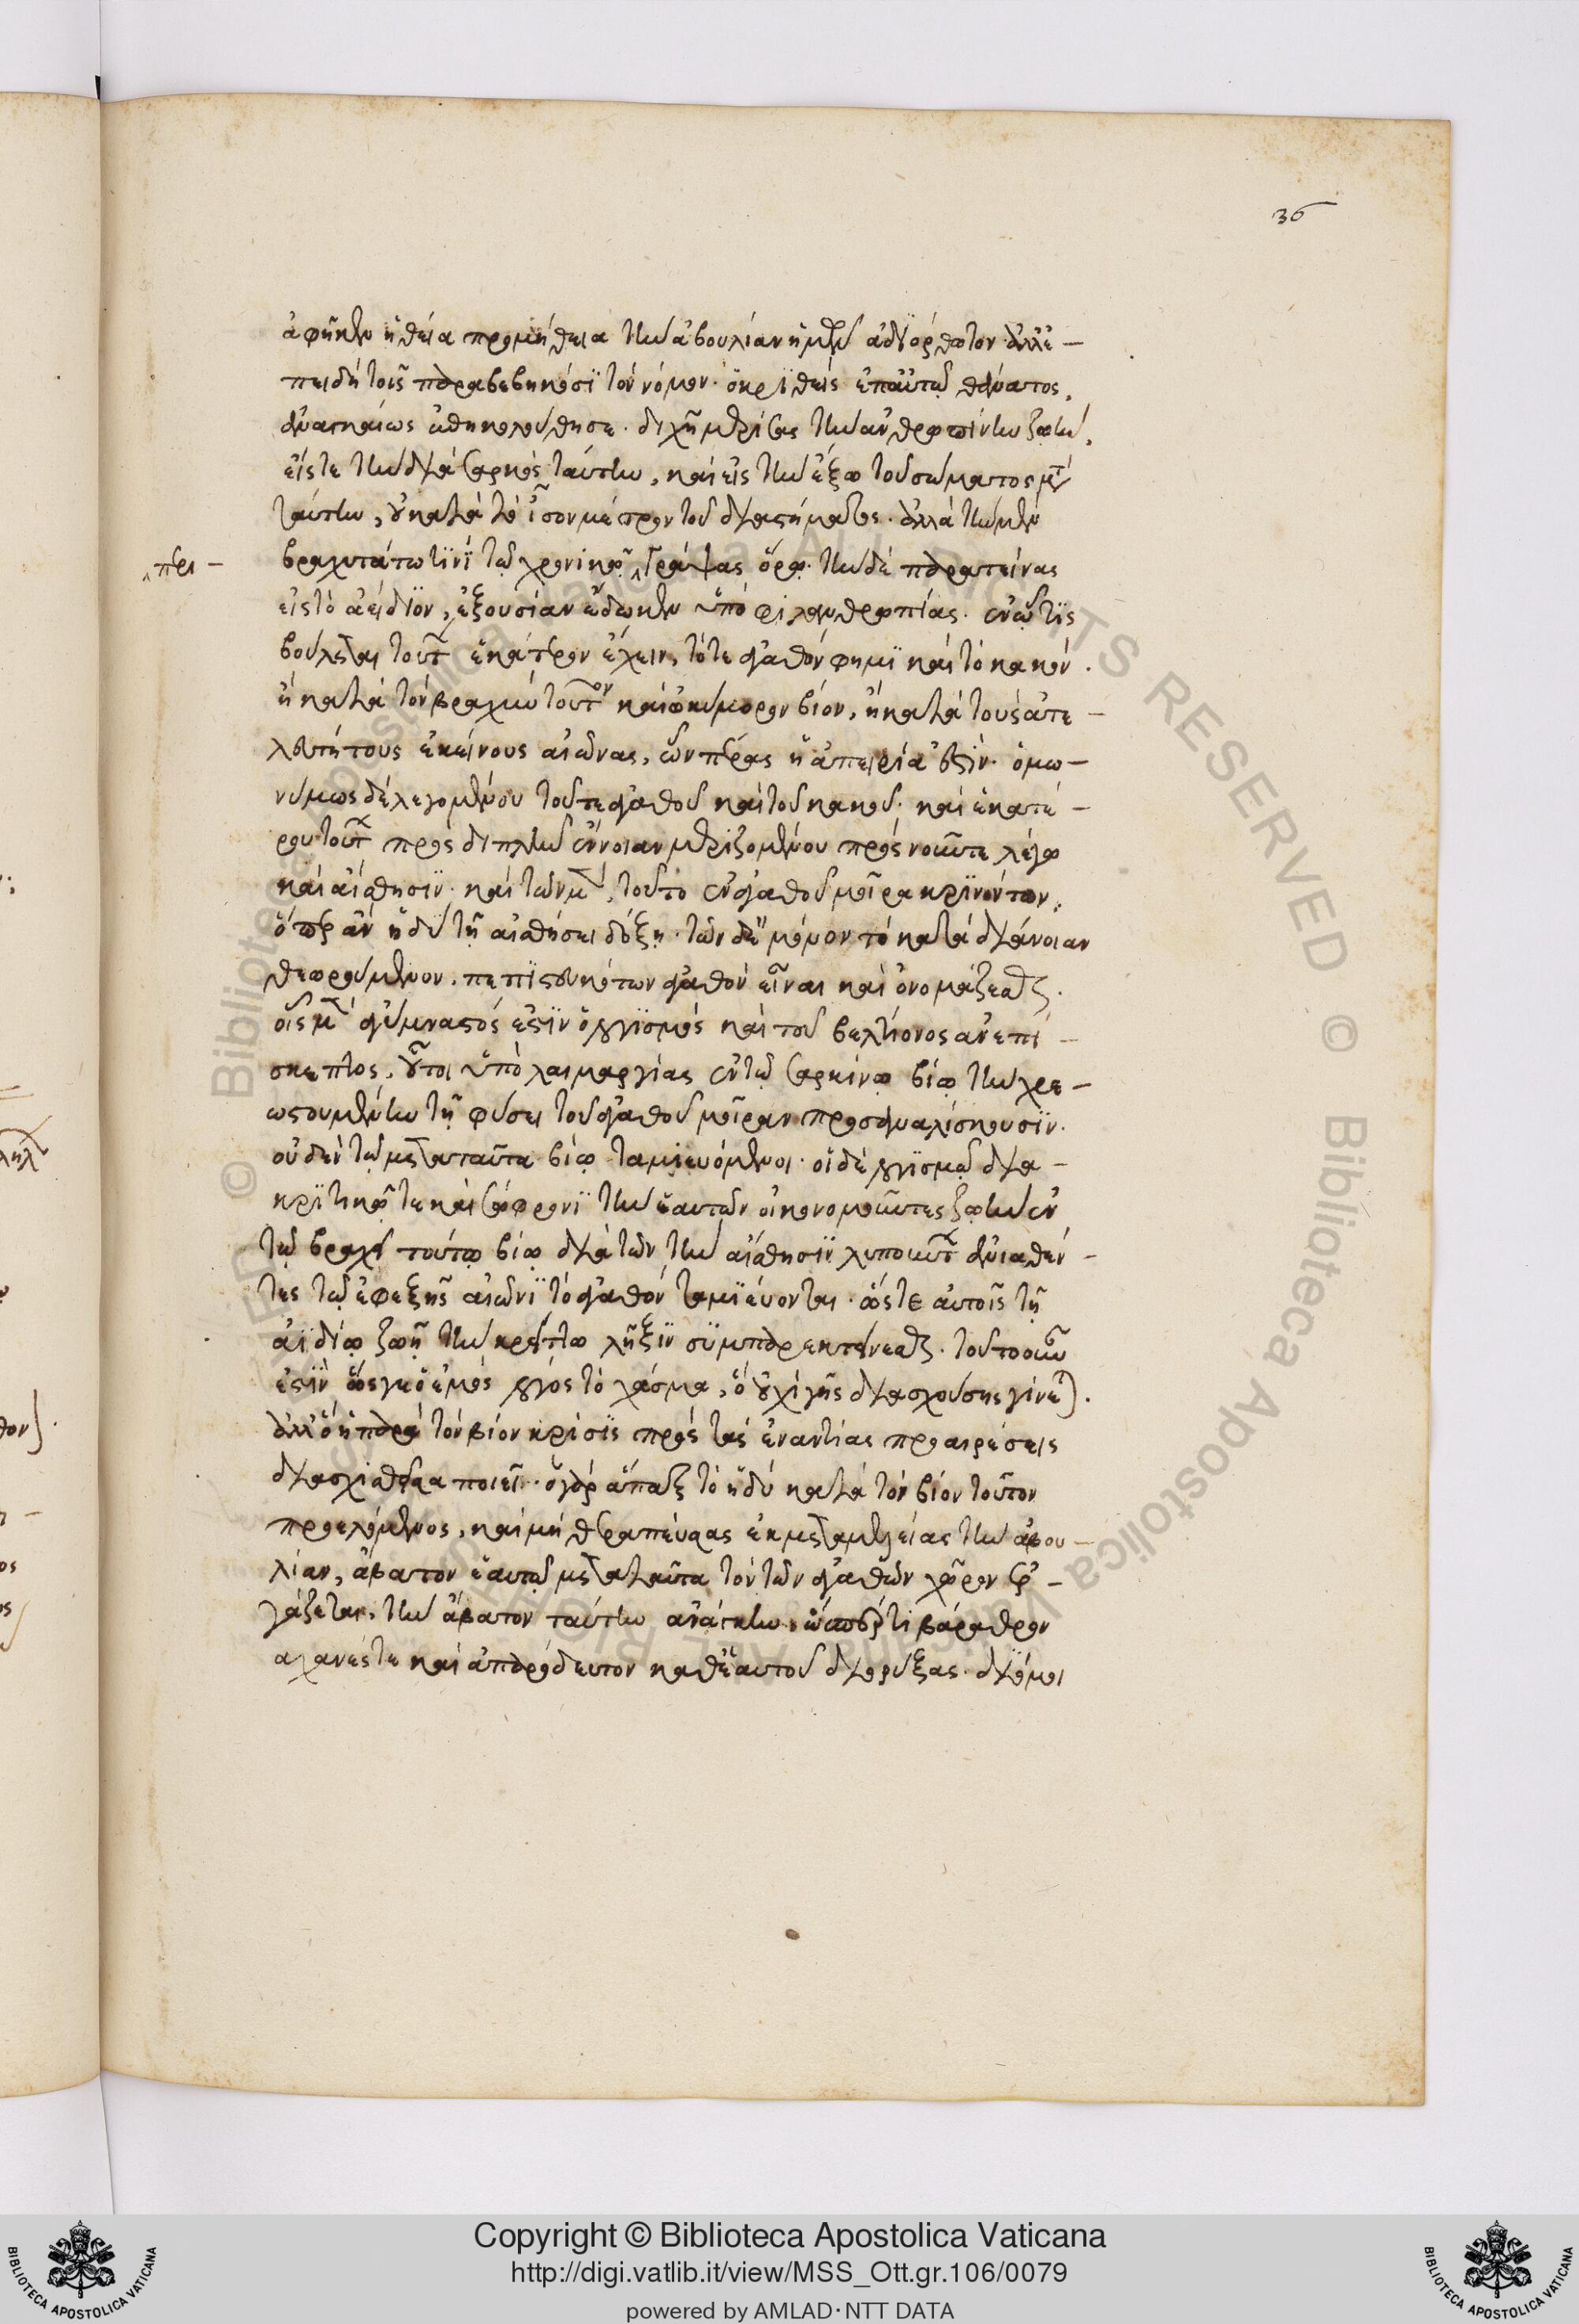 36
ἀφῆκεν ἡ θεία προμήθεια τὴν ἀβουλίαν ἡμῶν ἀδιόρθωτον· ἀλλ' ἐ-
πειδὴ τοῖς παραβεβηκόσϊ τὸν νόμον· ὁ κρϊθεὶς ἐπ' αὐτῷ θάνατος,
ἀναγκαίως ἐπηκολούθησε· διχῆ μερίσας τὴν ἀνθρωπίνην ζωὴν,
εἴς τε τὴν διὰ σαρκὸς ταύτην, καὶ εἰς τὴν ἔξω τοῦ σώματος μετὰ
ταύτην, οὐ κατὰ τὸ ἴσον μέτρον τοῦ διαστήματος· ἀλλὰ τὴν μὲν
βραχυτάτω τϊνϊ τῷ χρονικῷ γράψας ὅρῳ· τὴν δὲ παρατείνας
περι-
εἰς τὸ ἀείδϊον, ἐξουσίαν ἔδωκεν ὑπὸ φιλανθρωπίας· ἐν ᾧ τϊς
βούλεται τούτων ἑκάτερον ἔχειν, τότε ἀγαθὸν φημϊ καὶ τὸ κακὸν.
ἢ κατὰ τὸν βραχὺν τοῦτον καὶ ὠκύμορον βίον, ἢ κατὰ τοὺς ἀτε-
λευτήτους ἐκείνους αἰῶνας, ὧν πέρας ἡ ἀπειρία ἐστὶν· ὁμω-
νύμως δὲ λεγομένου τοῦ τε ἀγαθοῦ καὶ τοῦ κακοῦ· καὶ ἑκατέ-
ρου τούτων πρὸς διπλῆν ἔννοιαν μεριζομένου πρὸς νοῦν τε λέγω
καὶ αἴσθησϊν· καὶ τῶν μὲν, τοῦτο ἐν ἀγαθοῦ μοῖρα κρϊνόντων,
ὅπερ ἂν ἡδὺ τῇ αἰσθήσει δόξῃ· τῶν δὲ μόνον τὸ κατὰ διάνοιαν
θεωρούμενον, πεπϊστευκότων ἀγαθὸν εἶναι καὶ ὀνομάζεσθαι·
οἷς μὲν ἀγύμναστός ἐστϊν ὁ λογϊσμὸς καὶ τοῦ βελτίονος ἀνεπί-
σκεπτος, οὗτοι ὑπὸ λαιμαργίας ἐν τῷ σαρκίνῳ βίῳ τὴν χρε-
ωστουμένην τῇ φύσει τοῦ ἀγαθοῦ μοῖραν προσαναλίσκουσϊν·
οὐδὲν τῷ μετὰ ταῦτα βίῳ ταμιευόμενοι· οἱ δὲ λογϊσμῷ δια-
κρϊτικῷ τε καὶ σώφρονϊ τὴν ἑαυτῶν οἰκονομοῦντες ζωὴν ἐν
τῷ βραχεῖ τούτῳ βίῳ διὰ τῶν τὴν αἴσθησϊν λυπούντων ἀνιαθέν-
τες τῷ ἐφεξῆς αἰῶνϊ τὸ ἀγαθὸν ταμϊεύονται· ὥστε αὐτοῖς τῇ
ἀϊδίῳ ζωῇ τὴν κρείττω λῆξϊν συμπαρεκτείνεσθαι· τοῦτο οὖν
ἐστϊν ὥς γε ὁ ἐμὸς λόγος τὸ χάσμα, ὃ οὐχὶ γῆς διασχούσης γίνεται.
ἀλλ' ὃ ἡ παρὰ τὸν βίον κρίσϊς πρὸς τὰς ἐναντίας προαιρέσεις
διασχισθεῖσα ποιεῖ· ὁ γὰρ ἅπαξ τὸ ἡδὺ κατὰ τὸν βίον τοῦτον
προελόμενος, καὶ μὴ θεραπεύσας ἐκ μεταμελείας τὴν ἀβου-
λίαν, ἄβατον ἑαυτῷ μετὰ ταῦτα τὸν τῶν ἀγαθῶν χῶρον ἐρ-
γάζεται, τὴν ἄβατον ταύτην ἀνάγκην, ὥσπερ τι βάραθρον
ἀχανές τε καὶ ἀπαρόδευτον καθ' ἑαυτοῦ διορύξας· διό μοι
Copyright © Biblioteca Apostolica Vaticana
http://digi.vatlib.it/view/MSS_Ott.gr.106/0079
powered by AMLAD·NTT DATA